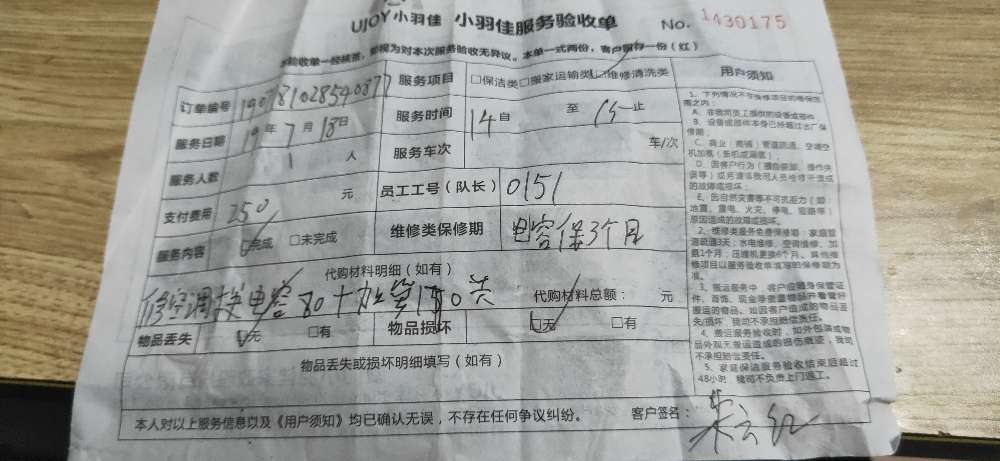 UJOY小羽佳 小羽佳服务验收单 No. 1430175
验收单一经核签，即视为对本次服务验收无异议。本单一式两份，客户留存一份（红）
订单编号 服务项目 □保洁类□搬家运输类☑维修清洗类
服务日期 19年7月18日 服务时间 14自 至 15止
服务人数 1 人 服务车次 车/次
支付费用 250 元 员工工号（队长） 0151
服务内容 ☑完成 □未完成 维修类保修期 电容保3个月
代购材料明细（如有）
修空调 电容80 代购材料总额： 元
物品丢失 ☑无 □有 物品损坏 ☑无 □有
物品丢失或损坏明细填写（如有）
本人对以上服务信息以及《用户须知》均已确认无误，不存在任何争议纠纷。 客户签名：
用户须知
1、下列情况不在保修项目的维保范
围之内：
A、非我司员工提供的设备或部件
B、设备或部件本身已经超过出厂保
修期；
C、商业（商铺）管道疏通、空调空
机加氟（新机或漏氟）；
D、因客户行为（擅自装卸、操作失
误等）或另请非我司人员检修所造成
的故障或损坏；
E、因自然灾害等不可抗拒力（如：
地震、雷电、火灾、停电、短路等）
原因造成的故障或损坏。
2、维修类服务免费保修期：家庭管
道疏通3天；水电维修、空调维修、加
氨1个月；压缩机更换6个月。其他维
修项目以服务验收单填写的保修期为
准。
3、搬运服务中，客户应随身保管证
件、首饰、现金等贵重物品并看管好
搬运的物品。如因客户造成的物品丢
失/损坏，我司不承担赔偿责任。
4、搬运服务验收时，如外包装或物
品外观无普运造成的损伤痕迹，我司
不承担赔偿责任。
5、家庭保洁服务验收结束后超过
48小时，我司不负责上门返工。